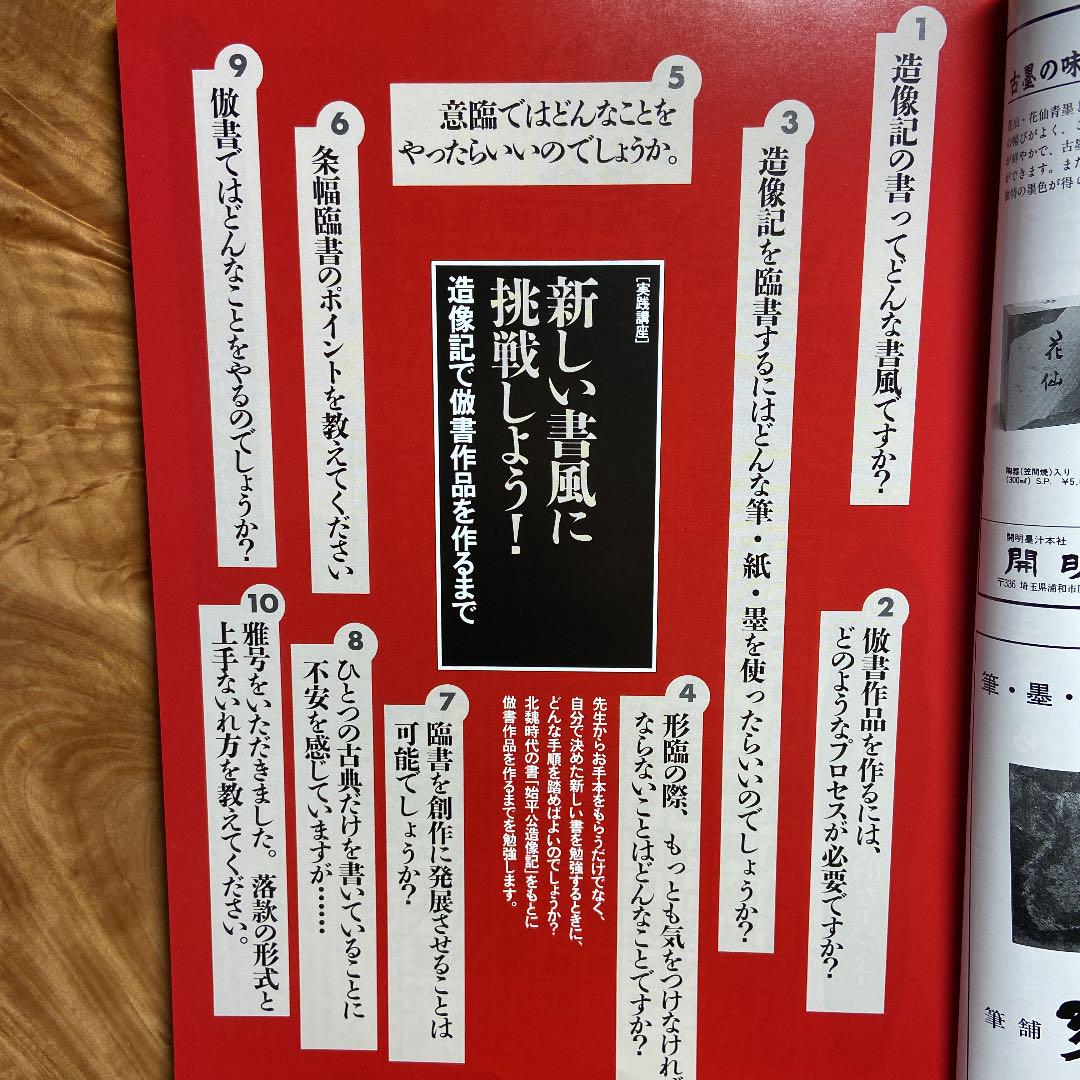 [実践講座]
新しい書風に
挑戦しよう!
造像記で倣書作品を作るまで
先生からお手本をもらうだけでなく、
自分で決めた新しい書を勉強するときに、
どんな手順を踏めばよいのでしょうか?
北魏時代の書「始平公造像記」をもとに
倣書作品を作るまでを勉強します。
1
造像記の書ってどんな書風ですか?
2
倣書作品を作るには、
どのようなプロセスが必要ですか?
3
造像記を臨書するにはどんな筆・紙・墨を使ったらいいのでしょうか?
4
形臨の際、もっとも気をつけなければ
ならないことはどんなことですか?
5
意臨ではどんなことを
やったらいいのでしょうか。
6
条幅臨書のポイントを教えてください
7
臨書を創作に発展させることは
可能でしょうか?
8
ひとつの古典だけを書いていることに
不安を感じていますが……
9
倣書ではどんなことをやるのでしょうか?
10
雅号をいただきました。落款の形式と
上手ないれ方を教えてください。
古墨の味
花仙・花仙青墨
の暢びがよく、
が鮮やかで、古墨
ができます。また
独特の墨色が得
花仙
陶器(笠間焼)入り
(300㎖) S.P. ¥5,
開明墨汁本社
開明
〒336 埼玉県浦和市
筆・墨・
筆舗